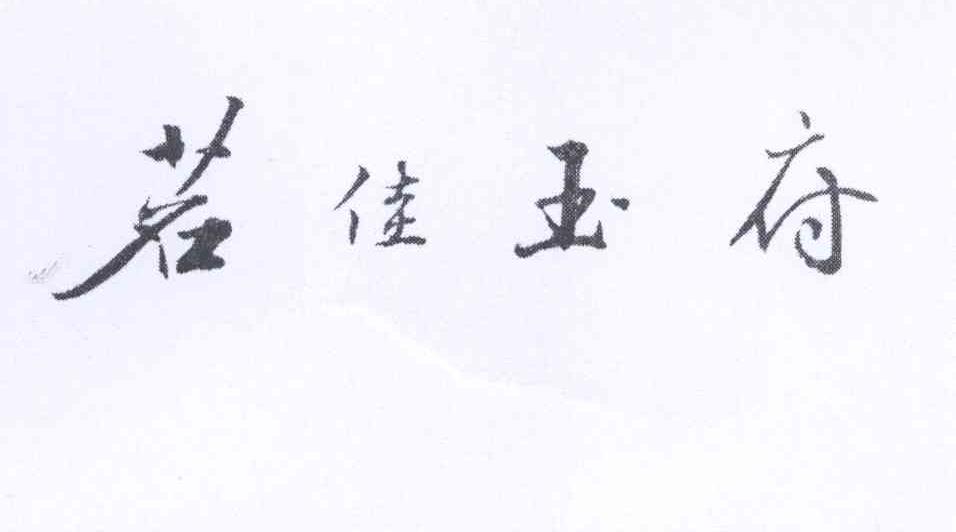 茗佳玉府